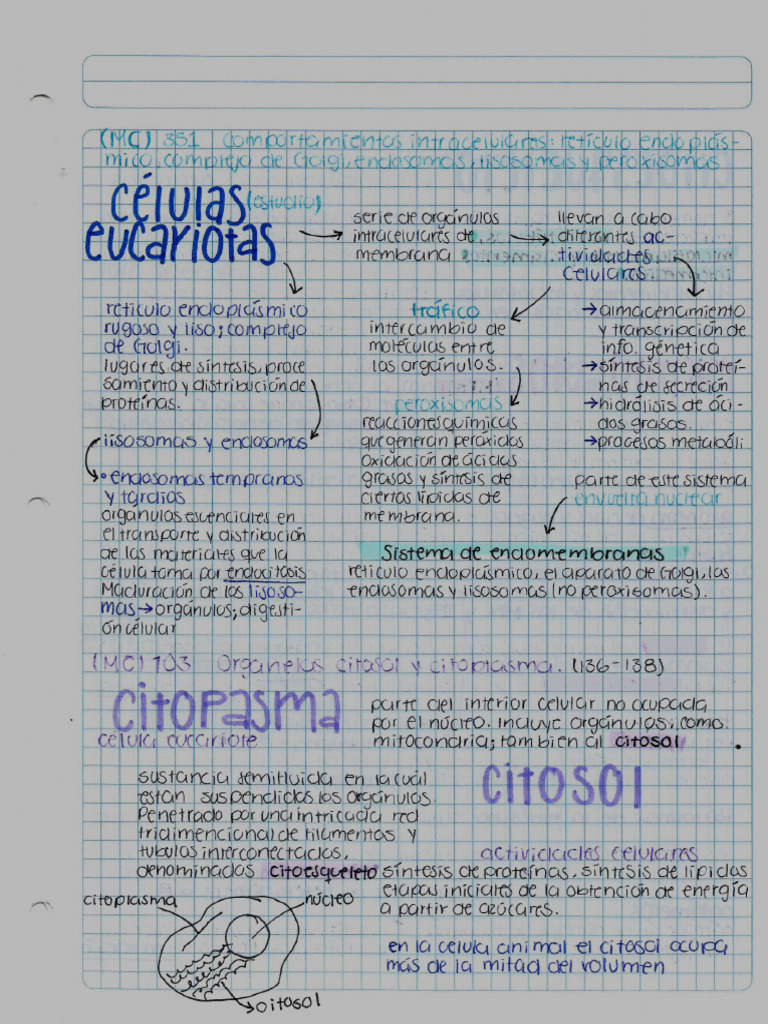 (MC) 351 Compartamientos intracelulares: retículo endoplás-
mico, complejo de Golgi, endosomas, lisosomas y peroxisomas
células (estudio)
eucariotas
serie de orgánulos
intracelulares de
membrana
llevan a cabo
diferentes ac-
tividades
celulares.
retículo endoplásmico
rugoso y liso; complejo
de Golgi.
lugares de síntesis, proce
samiento y distribución de
proteínas.
lisosomas y endosomas
• endosomas tempranos
y tardíos
orgánulos escenciales en
el transporte y distribución
de los materiales que la
célula toma por endocitosis
Madduración de los lisoso-
mas → orgánulos; digesti-
ón célular
tráfico
intercambio de
moléculas entre
los orgánulos.
peroxisomas
reacciones químicas
que generan peróxidos
Oxidación de ácidos
grasos y síntesis de
ciertos lípidos de
membrana.
→ almacenamiento
y transcripción de
info. génetica
→ síntesis de proteí-
nas de secreción
→ hidrólisis de áci-
dos grasos.
→ procesos metabóli
parte de este sistema
envuelta nuclear
Sistema de endomembranas
retículo endoplásmico, el aparato de Golgi, los
endosomas y lisosomas (no peroxisomas).
(MC) 103 Organelos citosol y citoplasma. (136-138)
citopasma
célula eucariote
parte del interior celular no ocupada
por el núcleo. Incluye orgánulos, como
mitocondria; tambien al citosol.
sustancia semifluida en la cuál
están suspendidos los orgánulos.
Penetrado por una intricada red
tridimencional de filamentos y
tubulos interconectados,
denominados citoesqueleto
citosol
actividades celulares
síntesis de proteínas, síntesis de lípidos
etapas iniciales de la obtención de energía
a partir de azúcares.
en la celula animal el citosol ocupa
más de la mitad del volumen
citoplasma
núcleo
citosol